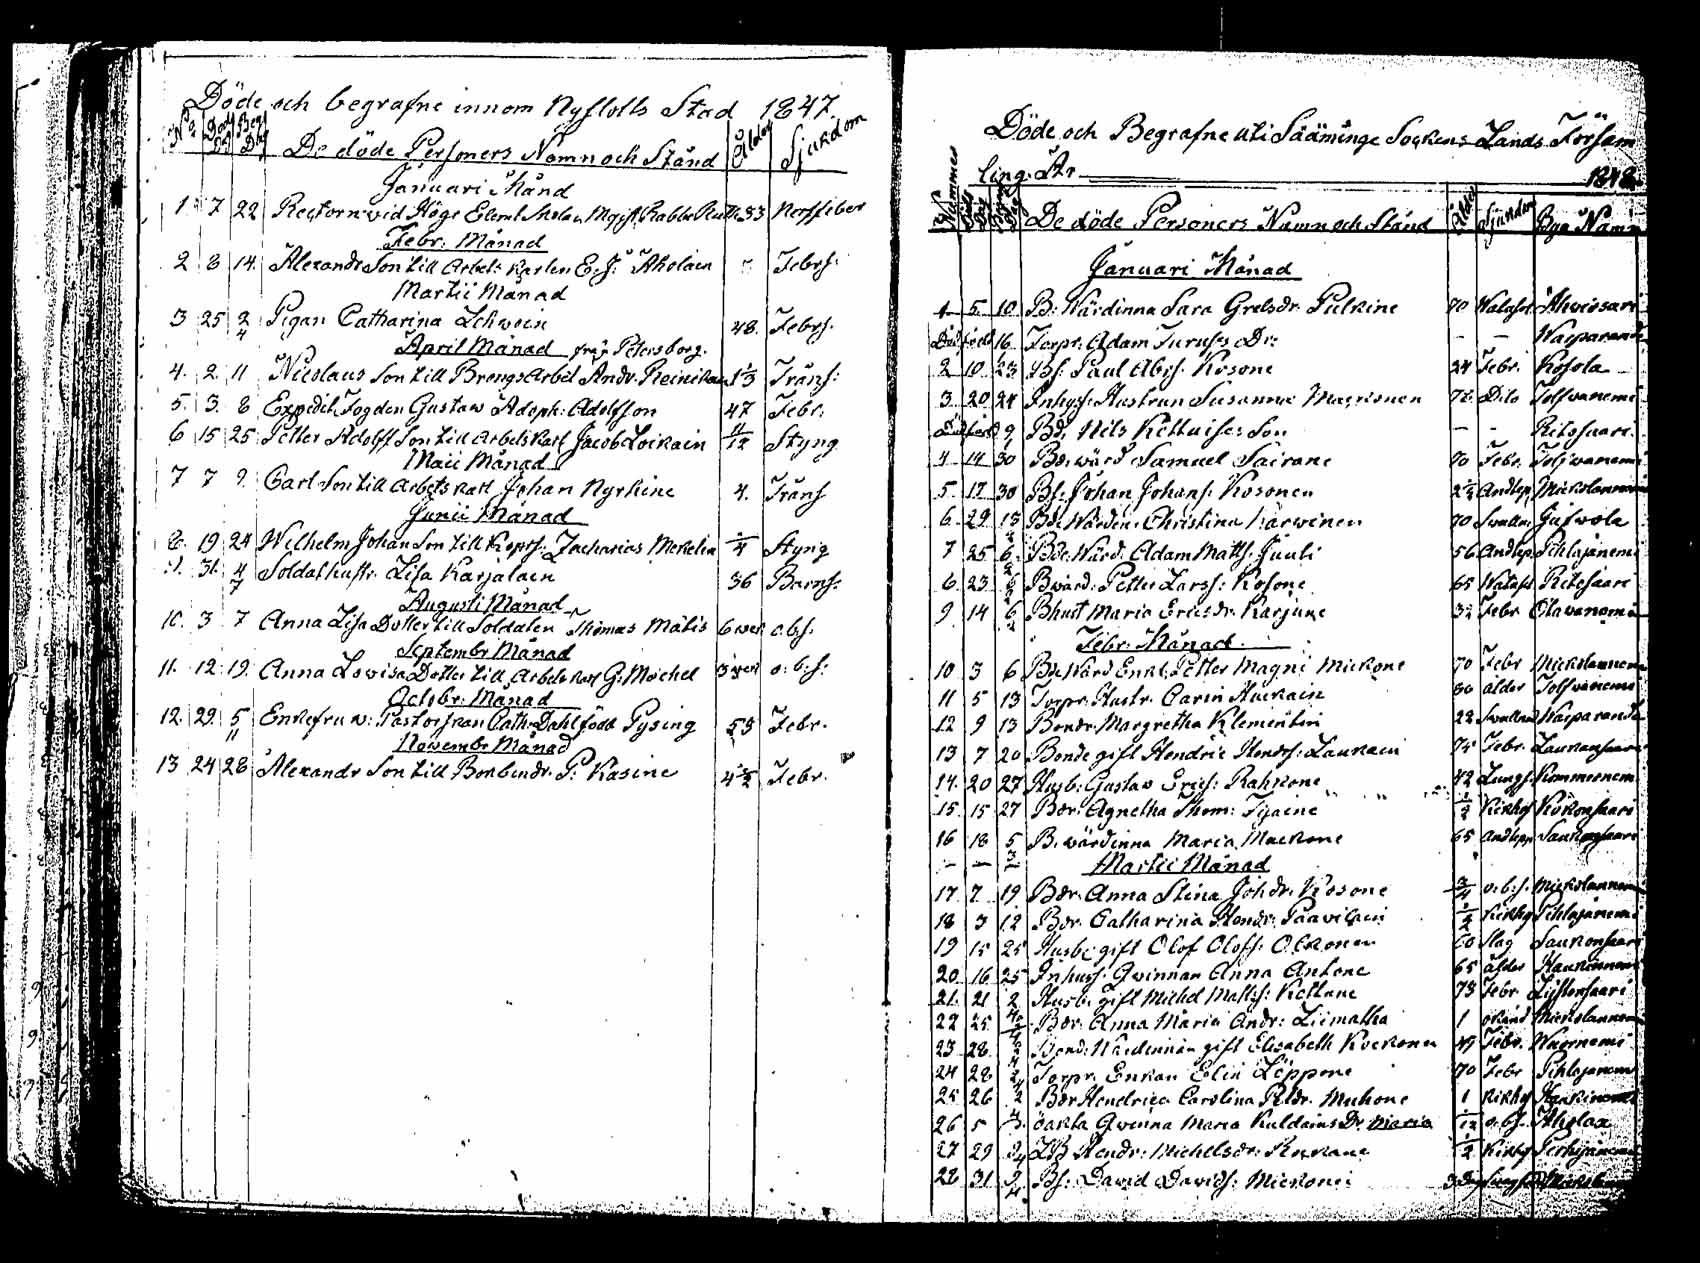 Döde och begrafne innom Nyslotts Stad 1847
No Död Dag Begr Dag De döde Personers Namn och Stånd Ålder Sjukdom
Januari Månd
1 7 22 Rectorn wid Högr Eleml Skolan 33 Nerffeber
Febr. Månad
2 8 14. Alexandr Son till Arbets Karlen E. J. Äkolain Febrf.
Martii Månad
3 25 2/4 Pigan Catharina Lehwoin 48. Febrf.
April Månad från Petersborg.
4. 2 11 Nicolaus Son till Andr. Reinikain 1 1/3 Tränf:
5. 3. 8 Expedit. Fogden Gustaw Adoph: Adolfson 47 Febr:
6 15 25 Petter Adolff Son till Arbets Karl Jacob Loikain 11/12 Styng
Maii Månad
7 7 9. Carl Son till Arbets Karl Johan Nyrhine 4. Tränf
Junii Månad
8. 19 24 Wilhelm Johan Son till Zacharias Merkelin Styng
9. 31. 4/7 Soldat hustr. Lisa Karjalain 36 Barnf:
Augusti Månad
10. 3 7 Anna Lisa Dotter till Soldaten Thomas Matis 6 wek o.b.f.
Septembr Månad
11. 12 19. Anna Lowisa Dotter till Arbets Karl G. Mochel 3 wek o: b: f:
Octobr. Månad
12. 29. 5/11 Enkefru w: Pastorskan Cath: Dahl född Pysing 53 Febr.
Novembr Månad
13 24 28 Alexandr Son till P: Kasine 4 1/2 Febr.
Döde och Begrafne uti Sääminge Sockens Lands Försam
ling. År 1848
Nummer Död Dag Begr. Dag De döde Personers Namn och Stånd Ålder Sjukdom Bya Namn
Januari Månad
1. 5. 10 B: Wärdinna Sara Gretsdr. Pulkine 70 Watusot Ahwiosari
Dödfödt 16 Torpr: Adam Turuses Dr: – – Warparanda
2 10 23 Bf: Paul Abrf: Kosone 24 Febr. Kosola
3. 20 24 Inhysf: Hustrun Susanna Mackonen 72. Dito Tolfwanemi
Dödfödt 9 Bd. Nils Kettuises Son – – Ritosaari.
4 14 30 Bdewärd Samuel Sairane 70 Febr. Tolfwanemi
5. 17 30 Bf: Johan Johansf: Kosonen 2 1/2 Andtep Mickolannemi
6. 29 13 Bde Wärdin: Christina Kärwinen 70 Swullna Jufwola
7 25 6 Bde Wärd: Adam Mattf. Juuti 56. Andtep Pihlajanemi
8 23 6 Bwärd: Petter Larsf: Kosone 65 Watusot Ritosaari
9 14 6/2 Bhust Maria Ericsdr. Karjune 3 1/2 Febr Olawanemi
Febr. Månad
10 3 6 Bde Wärd Enkl. Petter Magni Mickone 70 Febr Mickolannemi
11 5 13 Torpr: Hustr. Carin Auckain 80 ålder Tolfwanemi
12 9 13 Bondr. Margretha Klementin 22 Swullna Warparanda
13 7 20 Bonde gift Hendric Hendrf: Laukain 75 Febr. Laukansaari
14. 20 27 Husb: Gustaw Ericf: Rahkone 42 Lungf. Kommernemi
15 15 27 Bdr. Agnetha Thom: Tijaine 1/2 Kikhos Kokonsaari
16 18 5/3 B. wärdinna Maria Mackone 65 andtepp Saukonsaari
– – – Martii Månad
17 7. 19 Bdr. Anna Stina Johdr. Kosone 3/4 o: b: f. Mickolannemi
18 3 12 Bdr. Catharina Hendr: Paavilain 1/2 Kikhos Pihlajanemi
19 15 25 Husb: gift Olof Oloff: Olkonen 60 Slag Saukonsaari
20. 16 25 Inhysf: Qwinnan Anna Antone 65 ålder Haukinnemi
21. 21 2 Husb: gift Michel Mattsf: Kettune 73 Febr. Liistonsaari
22 25 2/4 Bdr. Anna Maria Andr: Liimattha 1 okänd Mickolannemi
23 28 2/4 Bond: Wärdinnan gift Elisabeth Kockonen 49 Febr. Wuornemi
24 28 2/4 Torpr. Enkan Elin Läppone 70 Febr Pihlajanemi
25 26 2 Bdr Hendrica Carolina Petdr. Muhone 1 Kikhos Haukinnemi
26 5 oäkta Qwinna Maria Kuldains Dr. Maria 1/12 o.b.f. Aholax
27 29 9/4 LB Hendr: Michelsdr: Kurkane 1/2 Kikhos Pihlajanemi
28 31 9/4 Bf: David Davidf: Mickonei 3 Dag